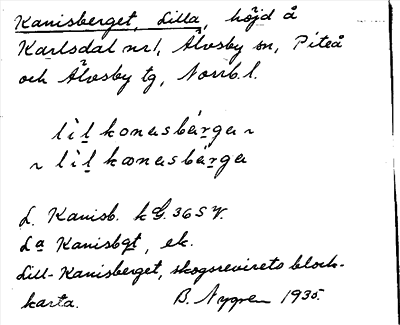 Kanisberget, Lilla, höjd å
Karlsdal nr 1, Älvsby sn, Piteå
och Älvsby tg, Norrb. l.
lìl kanɩsbárga ~
~ lìl kanɩsbárga
L. Kanisb. 36 S V.
La Kanisbgt, ek.
Lill-Kanisberget, skogsrevirets block-
karta. B. Nygren 1935.